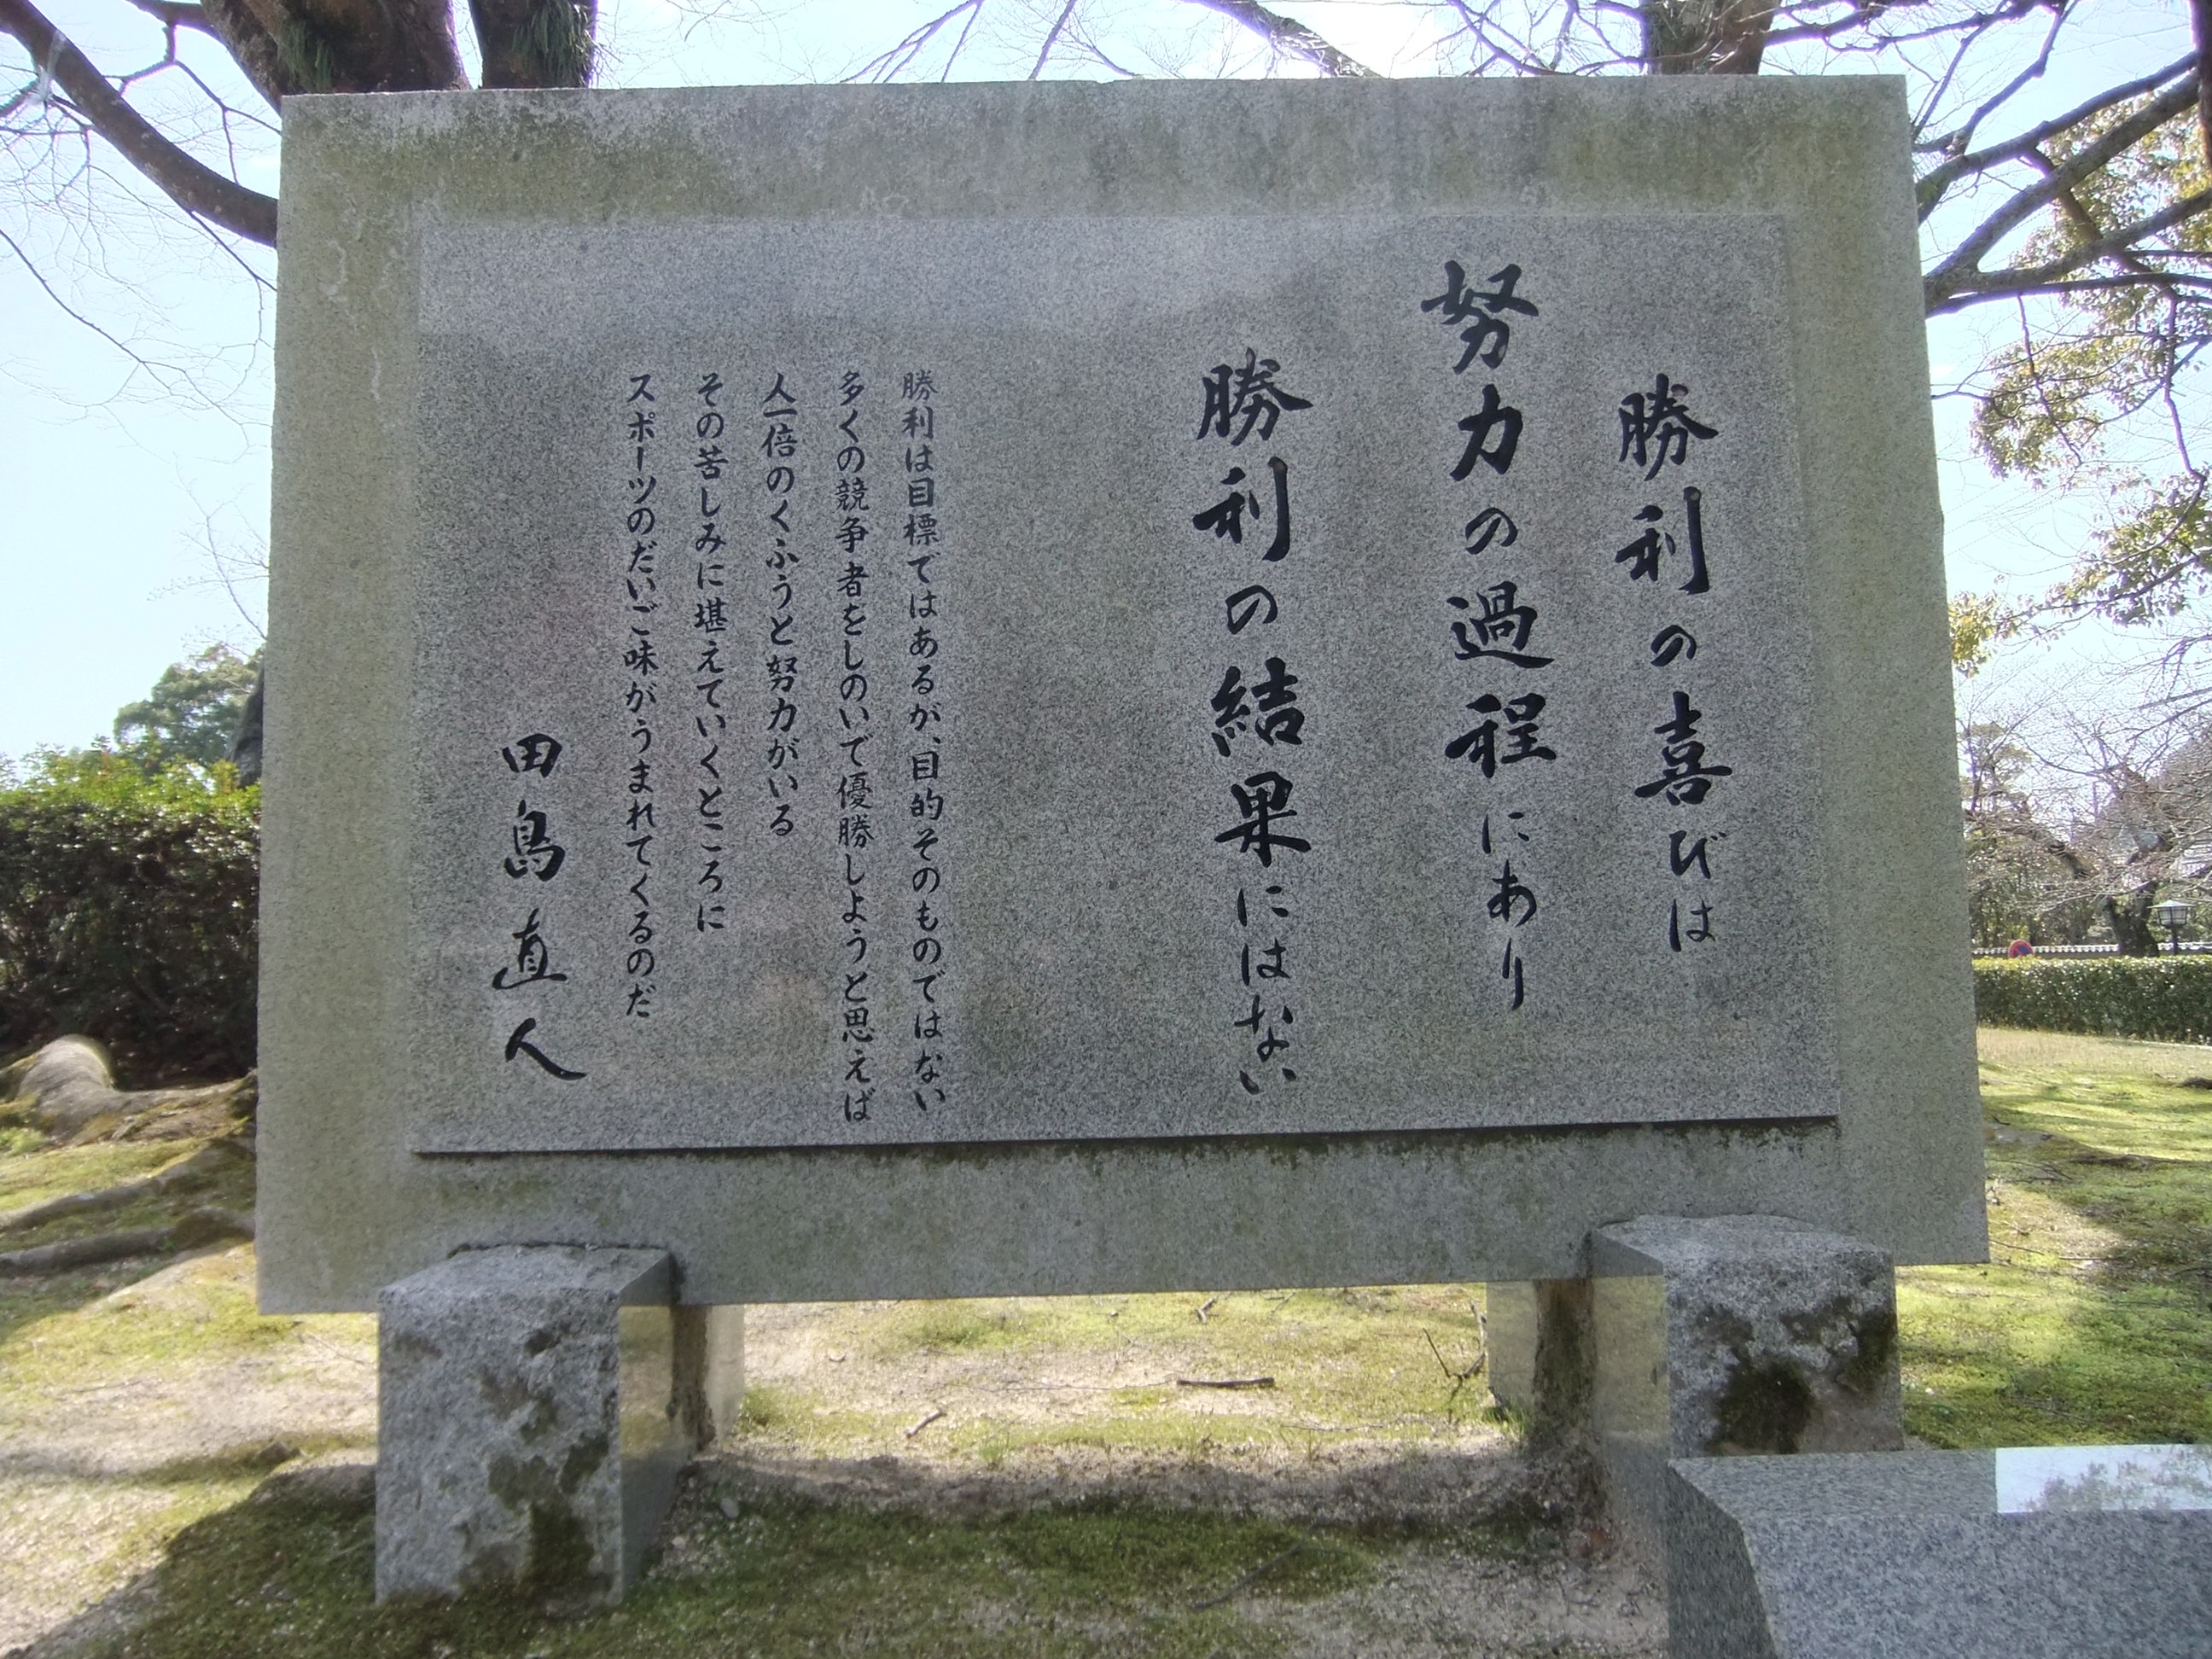 勝利の喜びは
努力の過程にあり
勝利の結果にはない
勝利は目標ではあるが、目的そのものではない
多くの競争者をしのいで優勝しようと思えば
人一倍のくふうと努力がいる
その苦しみに堪えていくところに
スポーツのだいご味がうまれてくるのだ
田島直人